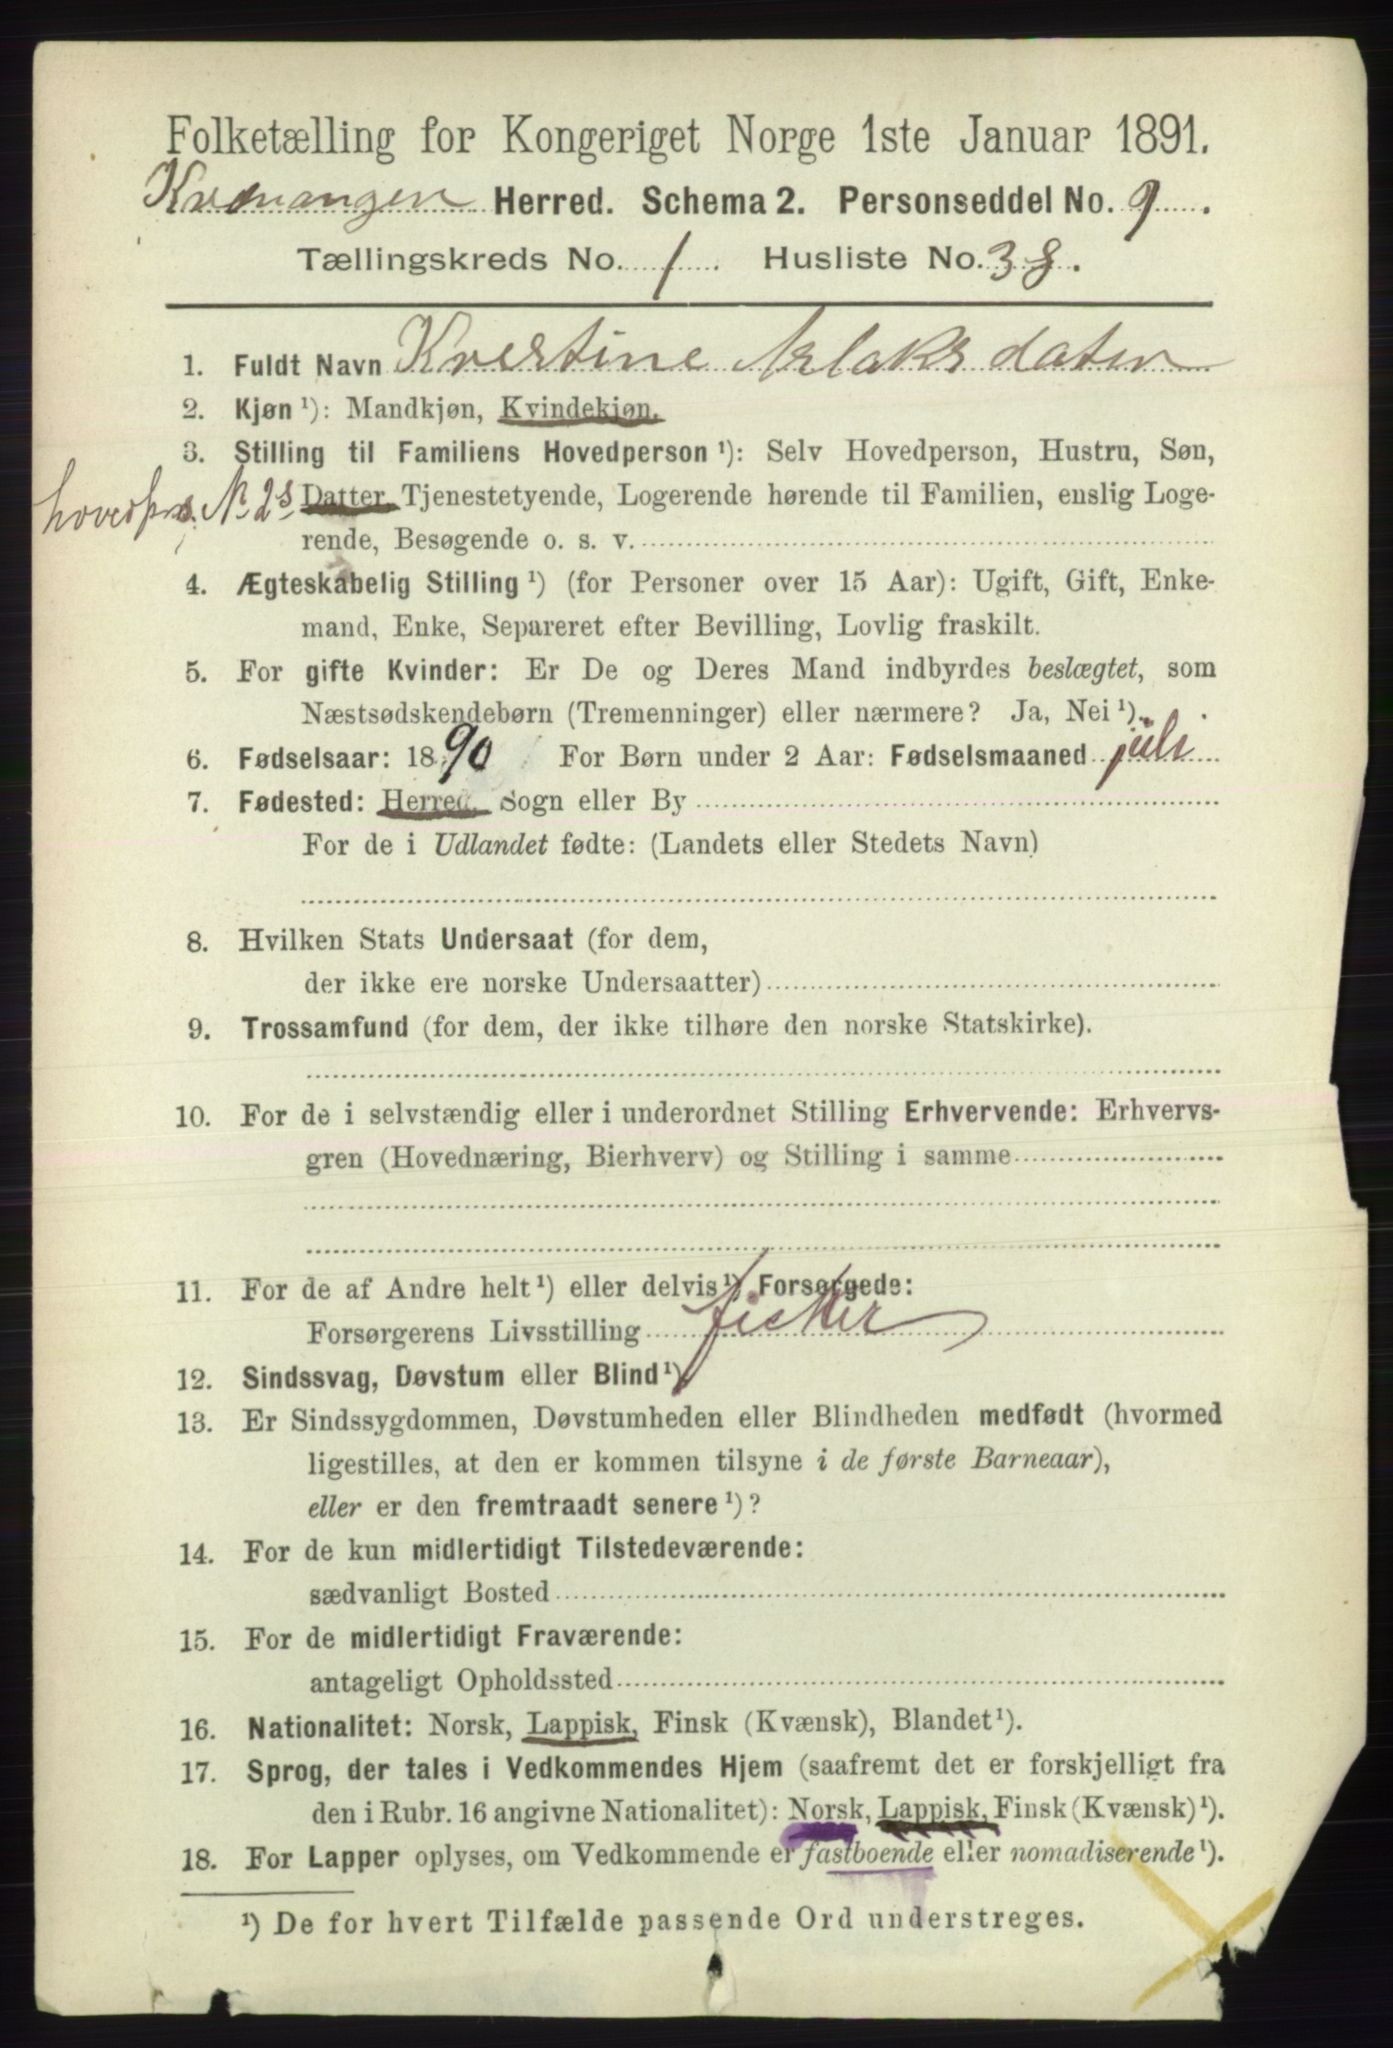 Folketælling for Kongeriget Norge 1ste Januar 1891.
Kvænangen Herred. Schema 2. Personseddel No. 9.
Tællingskreds No. 1. Husliste No. 38.
1. Fuldt Navn Krestine Aslaksdater
2. Kjøn ¹): Mandkjøn, Kvindekjøn.
3. Stilling til Familiens Hovedperson ¹): Selv Hovedperson, Hustru, Søn,
hovedpers. N. 2s Datter, Tjenestetyende, Logerende hørende til Familien, enslig Loge-
rende, Besøgende o. s. v.
4. Ægteskabelig Stilling ¹) (for Personer over 15 Aar): Ugift, Gift, Enke-
mand, Enke, Separeret efter Bevilling, Lovlig fraskilt.
5. For gifte Kvinder: Er De og Deres Mand indbyrdes beslægtet, som
Næstsødskendebørn (Tremenninger) eller nærmere? Ja, Nei ¹).
6. Fødselsaar: 1890 For Børn under 2 Aar: Fødselsmaaned juli
7. Fødested: Herred, Sogn eller By
For de i Udlandet fødte: (Landets eller Stedets Navn)
8. Hvilken Stats Undersaat (for dem,
der ikke ere norske Undersaatter)
9. Trossamfund (for dem, der ikke tilhøre den norske Statskirke).
10. For de i selvstændig eller i underordnet Stilling Erhvervende: Erhvervs-
gren (Hovednæring, Bierhverv) og Stilling i samme
11. For de af Andre helt ¹) eller delvis ¹) Forsørgede:
Forsørgerens Livsstilling ficker
12. Sindssvag, Døvstum eller Blind ¹)
13. Er Sindssygdommen, Døvstumheden eller Blindheden medfødt (hvormed
ligestilles, at den er kommen tilsyne i de første Barneaar),
eller er den fremtraadt senere ¹)?
14. For de kun midlertidigt Tilstedeværende:
sædvanligt Bosted
15. For de midlertidigt Fraværende:
antageligt Opholdssted
16. Nationalitet: Norsk, Lappisk, Finsk (Kvænsk), Blandet ¹).
17. Sprog, der tales i Vedkommendes Hjem (saafremt det er forskjelligt fra
den i Rubr. 16 angivne Nationalitet): Norsk, Lappisk, Finsk (Kvænsk) ¹).
18. For Lapper oplyses, om Vedkommende er fastboende eller nomadiserende ¹).
¹) De for hvert Tilfælde passende Ord understreges.